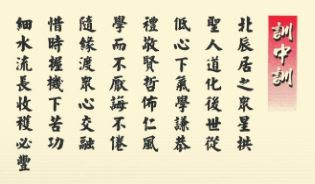 訓中訓
北辰居之眾星拱
聖人道化後世從
低心下氣學謙恭
禮敬賢哲佈仁風
學而不厭誨不倦
隨緣渡眾心交融
惜時握機下苦功
細水流長收穫必豐